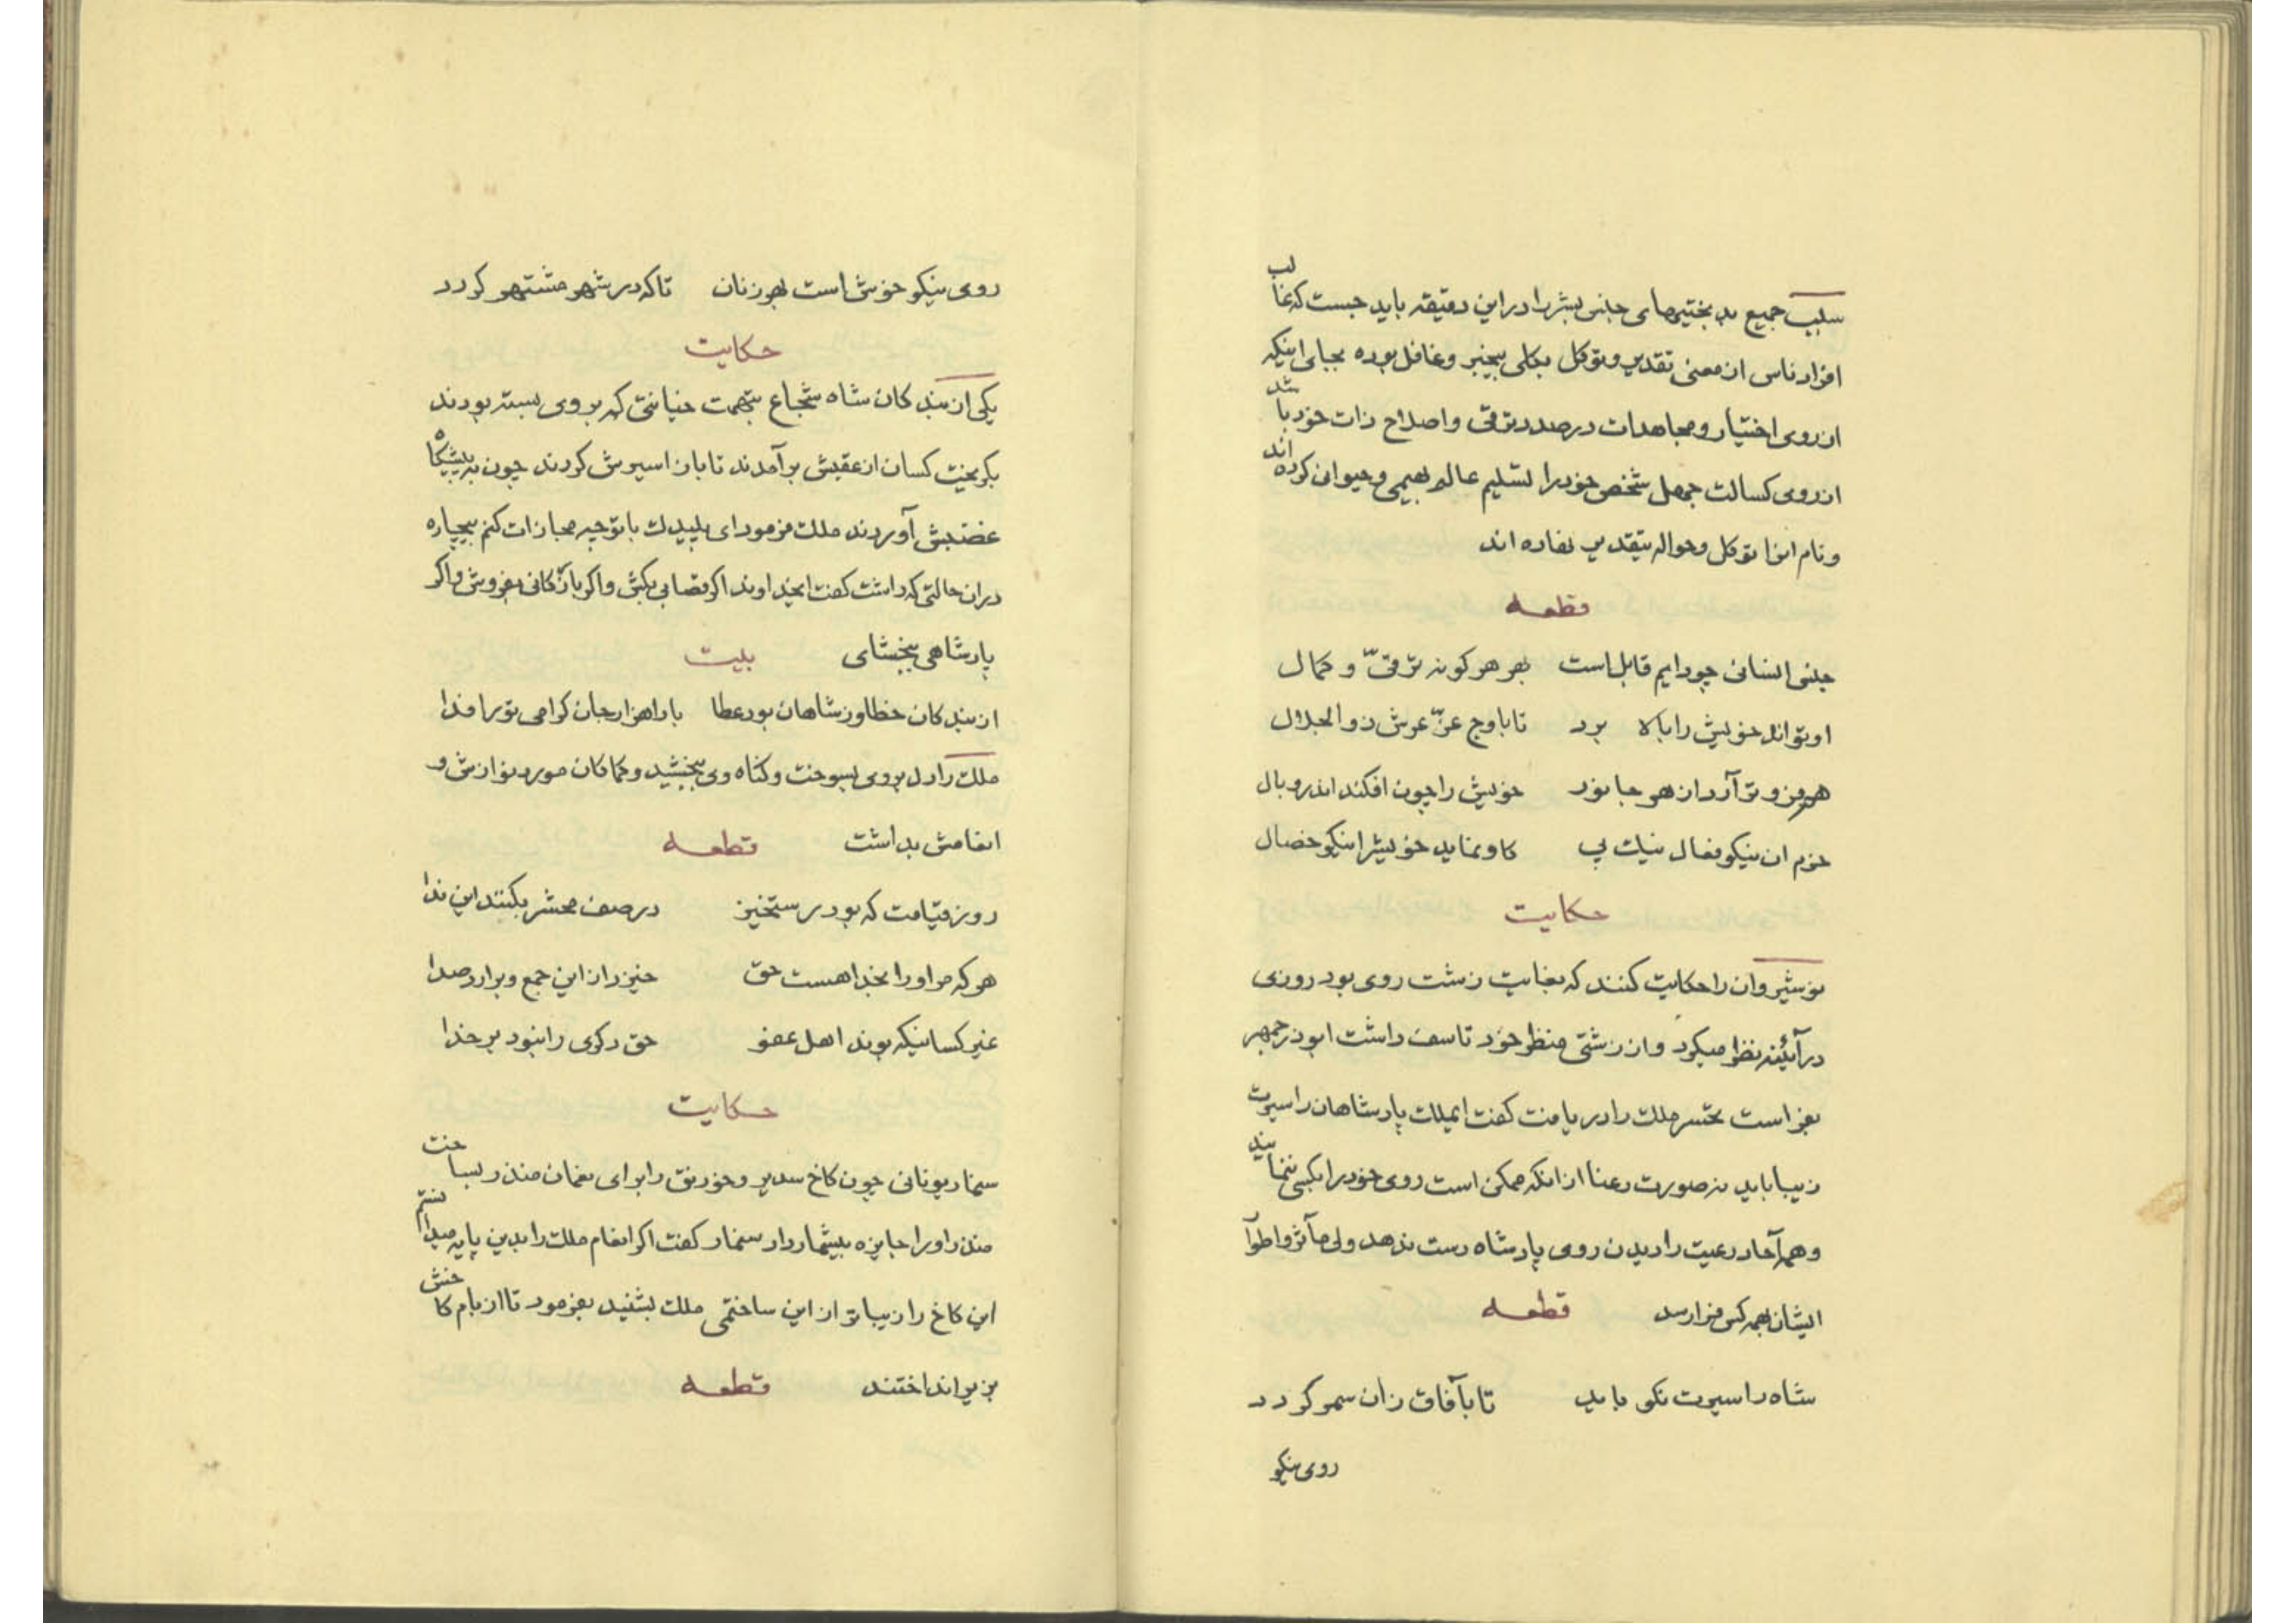 سبب جمیع بدبختیهای جنس بشر را در این دقیقه باید جست که غالب
افراد ناس از معنی تقدیر و توکل بکلی بیخبر و غافل بوده بجای اینکه
از روی اختیار و مجاهدات درصدد ترقی و اصلاح ذات خود باشند
از روی کسالت جهل شخص خود را تسلیم عالم بهیمی و حیوانی کرده‌اند
و نام انرا توکل و حواله بتقدیر نهاده اند
قطعه
جنس انسانی چو دایم قابل است بهر هر گونه ترقیّ و کمال
او تواند خویش را بالا برد تا باوج عزّ عرش ذوالجلال
هر فزوتر آرد از هر جانور خویش را چون افکند اندر وبال
خرم ان نیکو فعال نیک پی کاو نماید خویشرا نیکو خصال
حکایت
نوشیروان را حکایت کنند که بغایت زشت روی بود روزی
در آیئنه نظر میکرد و از زشتی منظر خود تاسف داشت ابوذرجمهر
بفراست تحسر ملک را دریافت گفت ایملک پادشاهان را سیرت
زیبا باید نه صورت رعنا از انکه ممکن است روی خود را بکسی ننمایند
و همه آحاد رعیت را دیدن روی پادشاه دست ندهد ولی مآثر و اطوار
ایشان بهمه کس فرا رسد قطعه
شاه را سیرت نکو باید تا بآفاق زان سمر گردد
روی نیکو
روی نیکو خوش است بهر زنان تا که در شهر مشتهر گردد
حکایت
یکی از بندکان شاه شجاع بتهمت خیانتی که بر وی بسته بودند
بگریخت کسان از عقبش برآمدند تا باز اسیرش کردند چون به پیشگاه
غضبش آوردند ملک فرمود ای پلیدک با تو چه مجازات کنم بیچاره
دران حالتی که داشت گفت ایخداوند اگر قصابی بکش و اگر بازرگانی بفروش و اگر
پادشاهی ببخشای بیت
از بندکان خطا و ز شاهان بود عطا بادا هزار جان گرامی تو را فدا
ملک را دل بر وی بسوخت و گناه وی ببخشید و کماکان مورد نوازش و
انعامش بداشت قطعه
روز قیامت که بود رستخیز در صف محشر بکنند این ندا
هر که مر او را بخدا هست حق خیزد از این جمع و برارد صدا
غیر کسانیکه بوند اهل عفو حق دکری را نبود بر خدا
حکایت
سنمار یونانی چون کاخ سدیر و خورنق را برای نعمان منذر بساخت
منذر او را جایزه بیشمار داد سنمار گفت اگر انعام ملک را بدین پایه میدانستم
این کاخ را زیباتر از این ساختمی ملک بشنید بفرمود تا از بام کاخش
بزیر انداختند قطعه